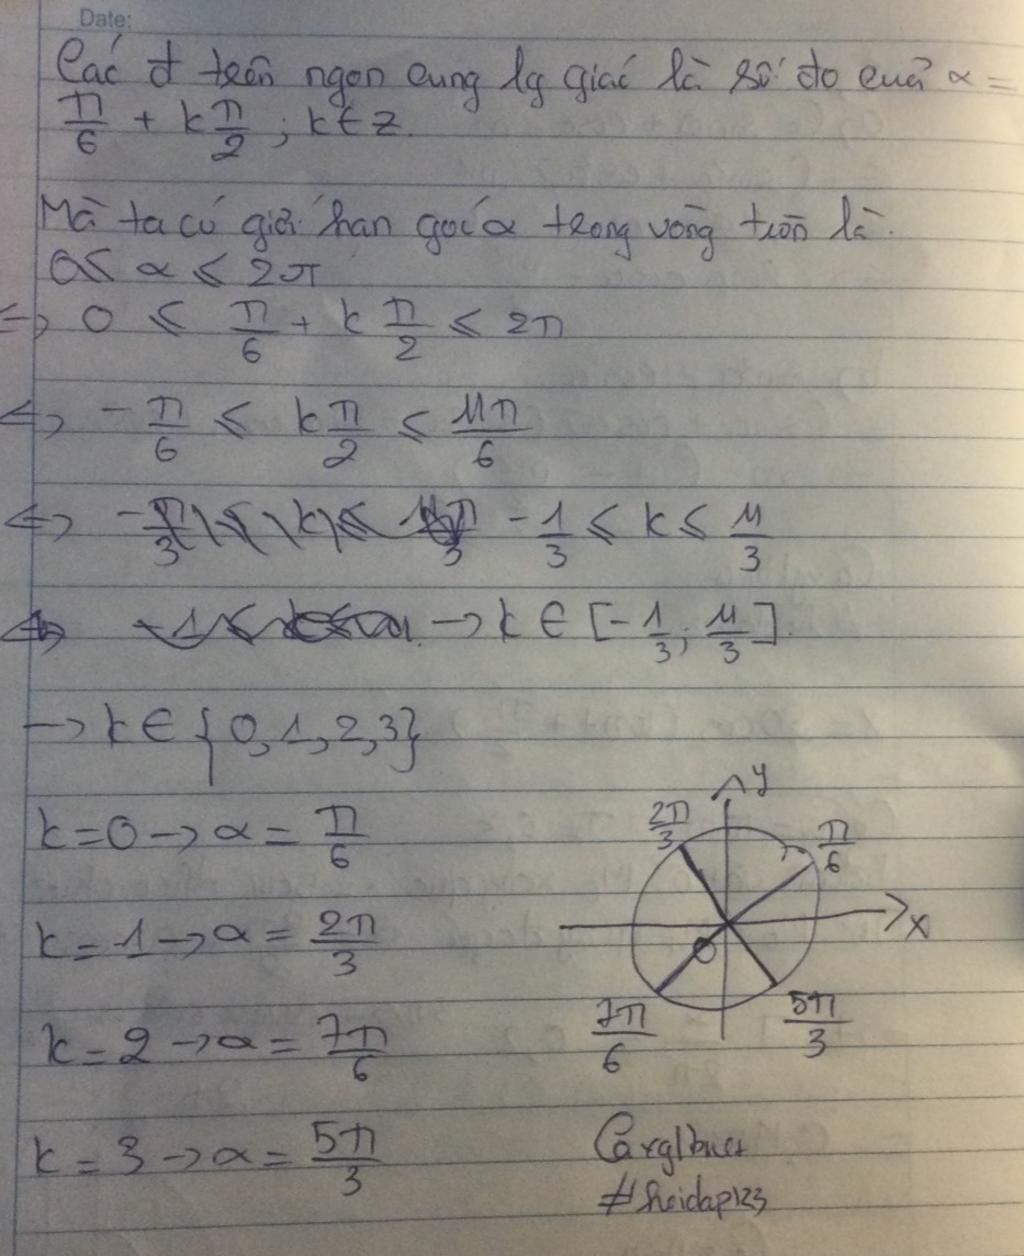 Date:
Các đ trên ngọn cung lg giác là số đo của α =
π/6 + k π/2 ; k ∈ Z.
Mà ta có giới hạn góc α trong vòng tròn là.
0 ≤ α ≤ 2π
=> 0 ≤ π/6 + k π/2 ≤ 2π
<=> -π/6 ≤ k π/2 ≤ 11π/6
<=> -1/3 ≤ k ≤ 11/3
→ k ∈ [-1/3; 11/3].
→ k ∈ {0,1,2,3}
k = 0 → α = π/6
k = 1 → α = 2π/3
k = 2 → α = 7π/6
k = 3 → α = 5π/3
y
2π/3
π/6
x
O
7π/6
5π/3
#hoidap123